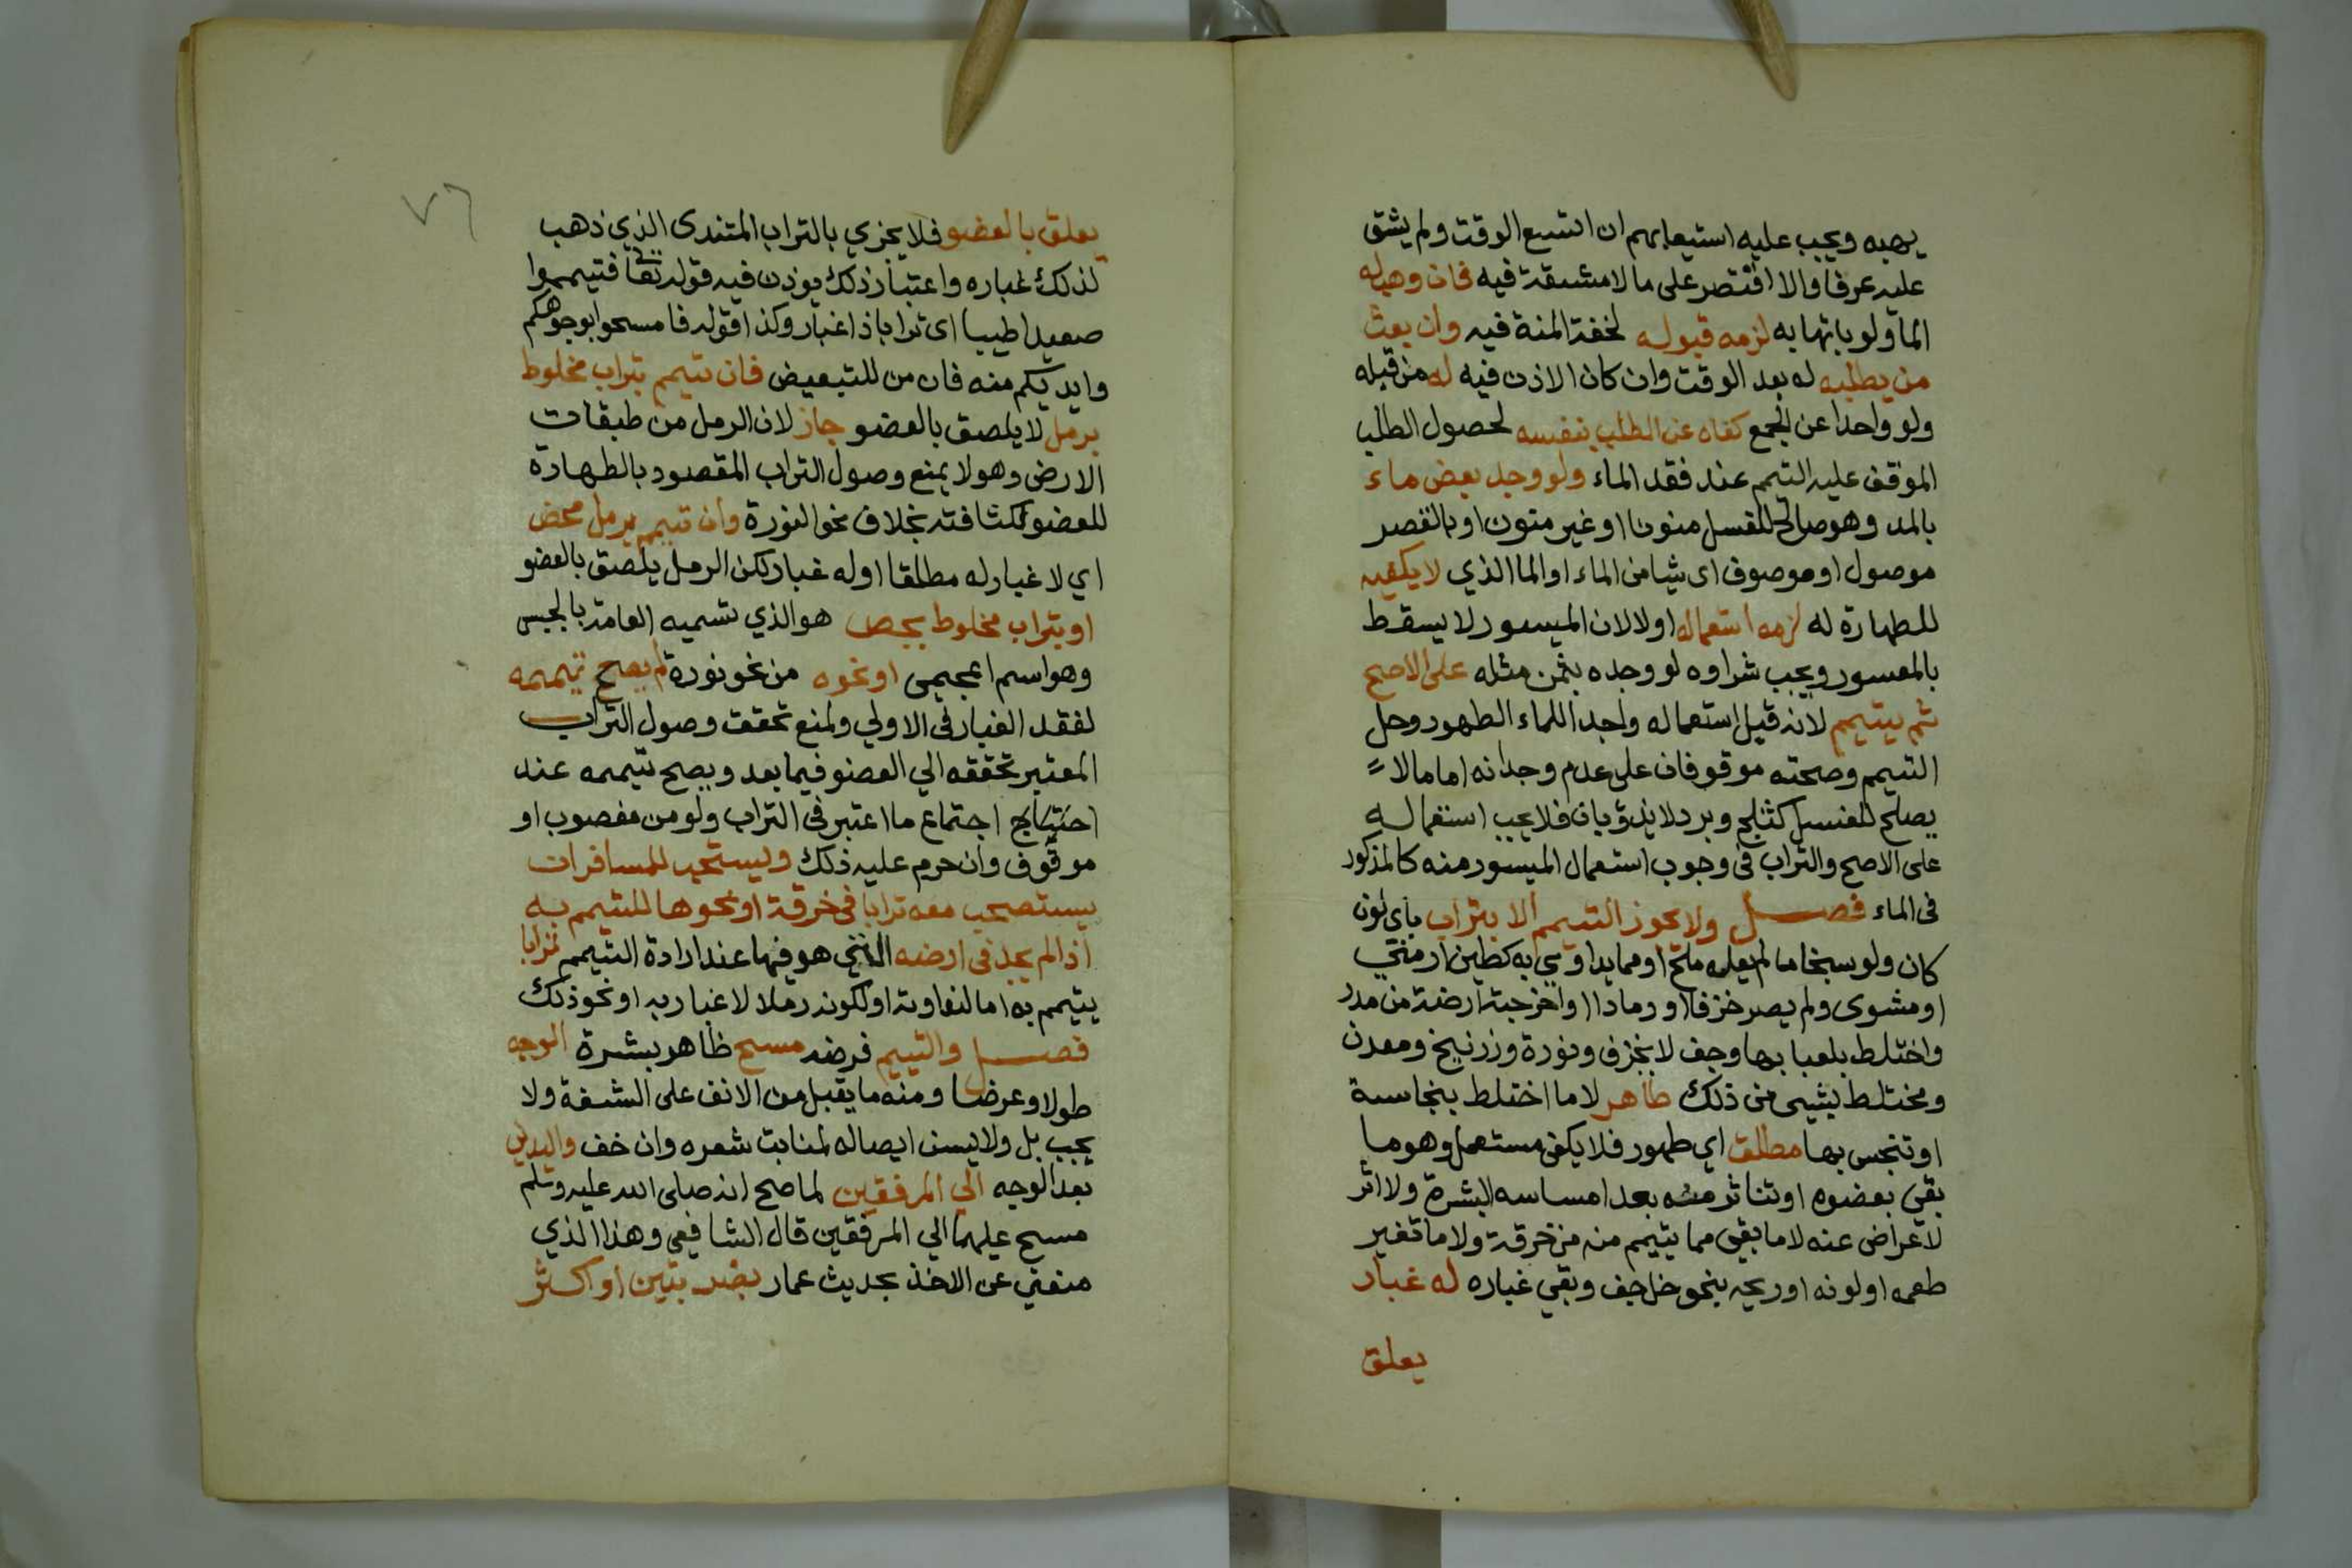 يهبه ويجب عليه استيعابهم ان اتسع الوقت ولم يشق
عليه عرفا والا اقتصر على ما لا مشقة فيه فان وهب له
الماء ولو باتهابه لزمه قبوله لخفة المنة فيه وان بعث
من يطلبه له بعد الوقت وان كان الاذن فيه له من قبله
ولو واحدا عن الجمع كفاه عن الطلب بنفسه لحصول الطلب
الموقف عليه التيمم عند فقد الماء ولو وجد بعض ماء
بالمد وهو صالح للغسل منونا او غير منون او بالقصر
موصول او موصوف اى شيا من الماء او الما الذي لا يكفيه
للطهارة له لزمه استعماله اولا لان الميسور لا يسقط
بالمعسور ويجب شراوه لو وجده بثمن مثله على الاصح
ثم يتيمم لانه قبل استعماله واجد اللماء الطهور وحل
التيمم وصحته موقوفان على عدم وجدانه اما ما لا
يصلح للغسل كثلج وبرد لا يذوبان فلا يجب استعماله
على الاصح والتراب فى وجوب استعمال الميسور منه كالمذكور
فى الماء فصل ولا يجوز التيمم الا بتراب باى لون
كان ولو سبخا ما لم يعله ملح او مما يداوي به كطين ارمني
او مشوى ولم يصر خزفا او رمادا او اخرجته ارضة من مدر
واختلط بلعابها وجف لا بخزف ونورة وزرنيخ ومعدن
ومختلط بشيى من ذلك طاهر لا ما اختلط بنجاسة
او تنجس بها مطلق اي طهور فلا يكفى مستعمل وهو ما
بقي بعضوه او تناثر منه بعد امساسه البشرة ولا اثر
لاعراض عنه لا ما بقي مما يتيمم منه من خرقة ولا ما تغير
طعمه او لونه او ريحه بنحو خل جف وبقي غباره له غبار
يعلق
٧٦
يعلق بالعضو فلا يجزي بالتراب المتندى الذي ذهب
لذلك غباره واعتبار ذلك يوذن فيه قوله تعا فتيمموا
صعيدا طيبا اى ترابا ذا غبار وكذا قوله فامسحوا بوجوهكم
وايديكم منه فان من للتبعيض فان تيمم بتراب مخلوط
برمل لا يلصق بالعضو جاز لان الرمل من طبقات
الارض وهو لا يمنع وصول التراب المقصود بالطهارة
للعضو لكثافته بخلاف نحو النورة وان تيمم برمل محض
اي لا غبار له مطلقا او له غبار لكن الرمل يلصق بالعضو
او بتراب مخلوط بجص هو الذي تسميه العامة بالجبس
وهو اسم اعجمى او نحوه من نحو نورة لم يصح تيممه
لفقد الغبار فى الاولي ولمنع تحقق وصول التراب
المعتبر تحققه الي العضو فيما بعد ويصح تيممه عند
اجتماع ما اعتبر فى التراب ولو من مغصوب او
موقوف وان حرم عليه ذلك ويستحب للمسافر ان
يستصحب معه ترابا فى خرقة او نحوها للتيمم به
اذا لم يجد فى ارضه التي هو فيها عند ارادة التيمم ترابا
يتيمم به اما لنداوته او لكونه رملا لا غبار به او نحو ذلك
فصل والتيمم فرضه مسح ظاهر بشرة الوجه
طولا وعرضا ومنه ما يقبل من الانف على الشفة ولا
يجب بل ولا يسن ايصاله لمنابت شعره وان خف واليدين
بعد الوجه الي المرفقين لما صح انه صلى الله عليه وسلم
مسح عليهما الي المرفقين قال الشافعي وهذا الذي
منعني عن الاخذ بحديث عمار بضربتين او اكثر